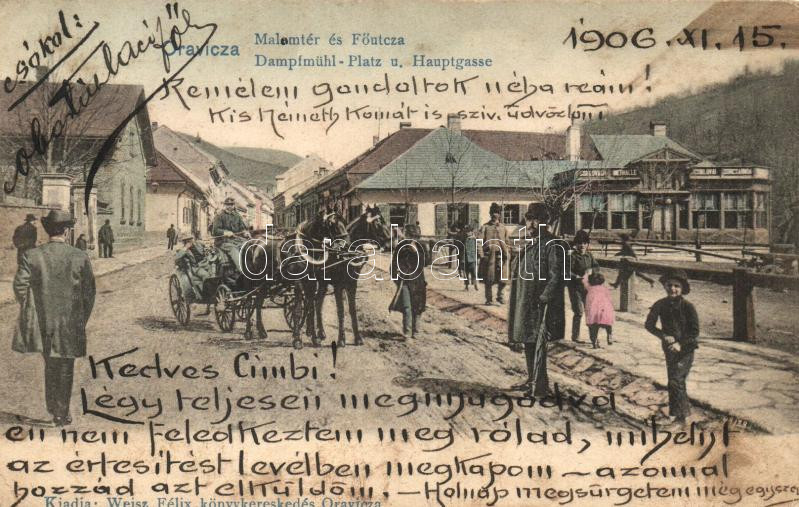 Oravicza
Malomtér és Főutcza
Dampfmühl-Platz u. Hauptgasse
1906. XI. 15.
csókol:
Remélem gondoltok néha reám!
Kis Németh Komát is sziv. üdvözlöm
darabanth
Kedves Cimbi!
Légy teljesen megnyugodva
én nem feledkeztem meg rólad, mihelyt
az értesítést levélben megkapom – azonnal
hozzád azt elküldöm. – Holnap megsürgetem még egyszer
Kiadja: Weisz Félix könyvkereskedés Oravicza